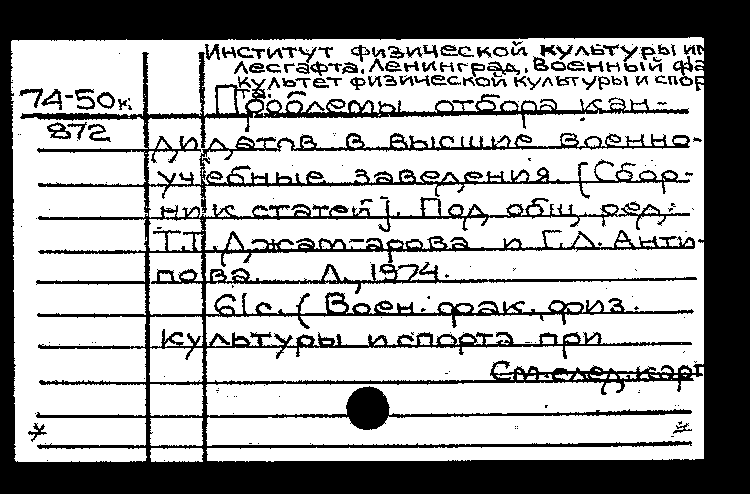 Институт физической культуры им
Лесгафта, Ленинград, Военный фа
культет физической культуры и спор
та.
74-50к
872
Проблемы отбора кан-
дидатов в высшие военно-
учебные заведения. [Сбор-
ник статей]. Под общ. ред.
Т.Т. Джамгарова и Г.Л. Анти-
пова. Л., 1974.
61с. (Воен. фак. физ.
культуры и спорта при
См. след. карт